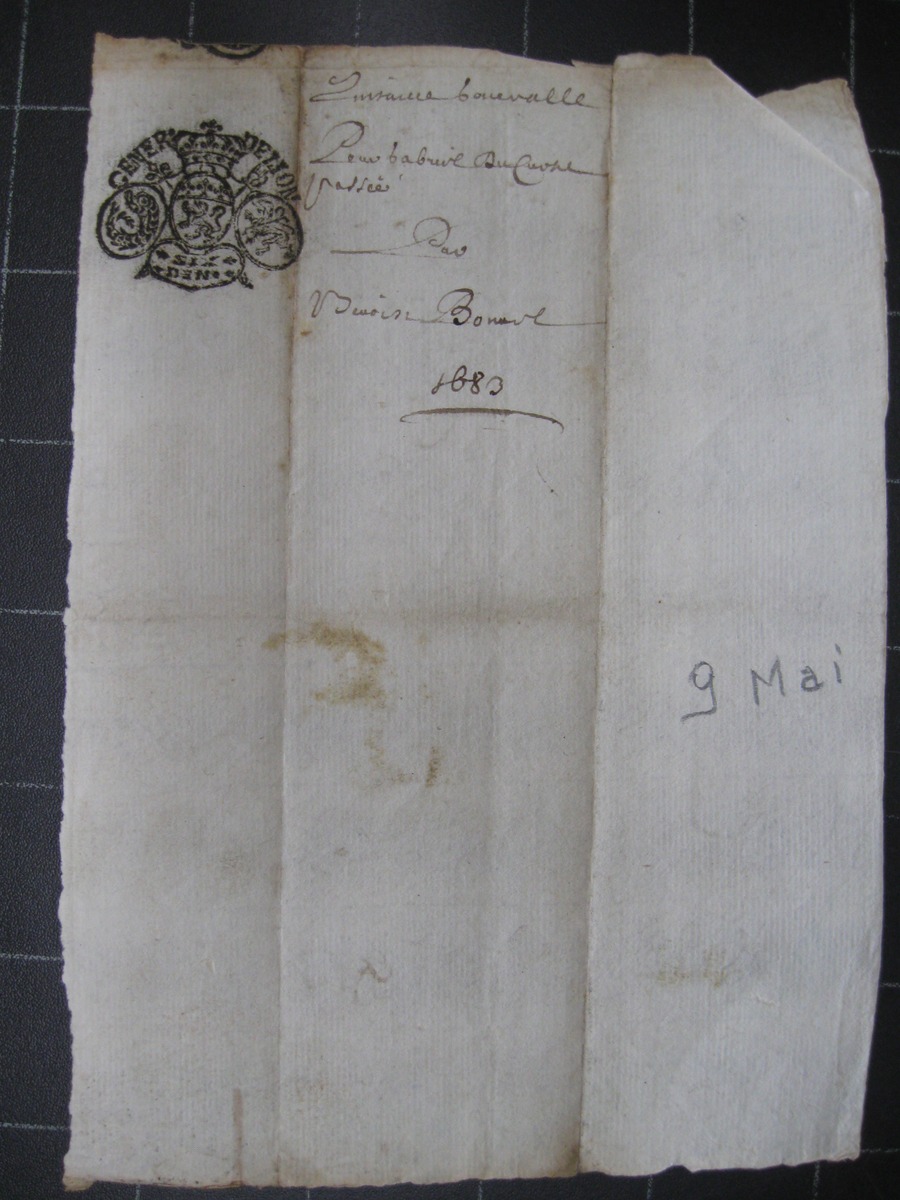 GENER DE LYON
SIX
DEN.
Quitance bonevalle
Pour Gabriel Du Curtil
passée
Par
Benoist Bonnet
1683
9 Mai